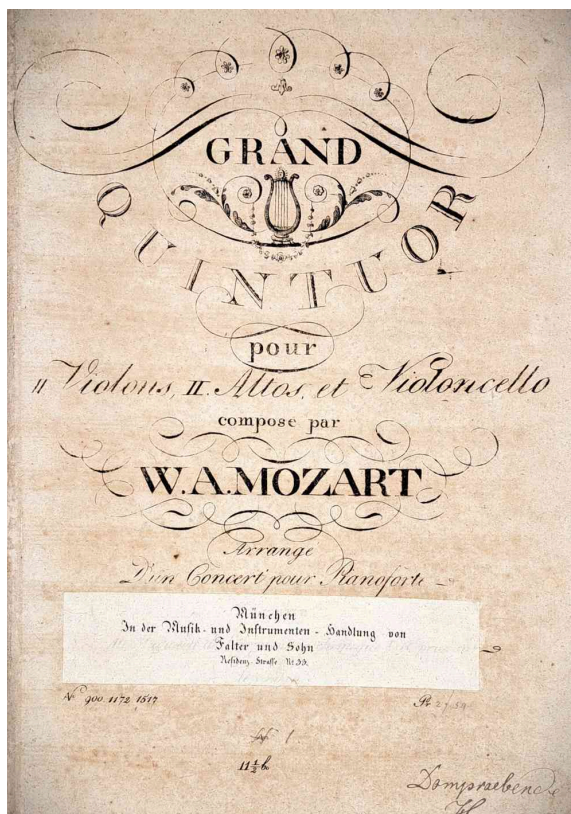 GRAND
QUINTUOR
pour
II Violons, II. Altos, et Violoncello
compose par
W.A.MOZART
Arrange
D'un Concert pour Pianoforte
München
In der Musik- und Instrumenten-Handlung von
Falter und Sohn
Residenz Strasse Nr. 33.
No. 900. 1172. 1517
11 1/2 b.
Dompraebende